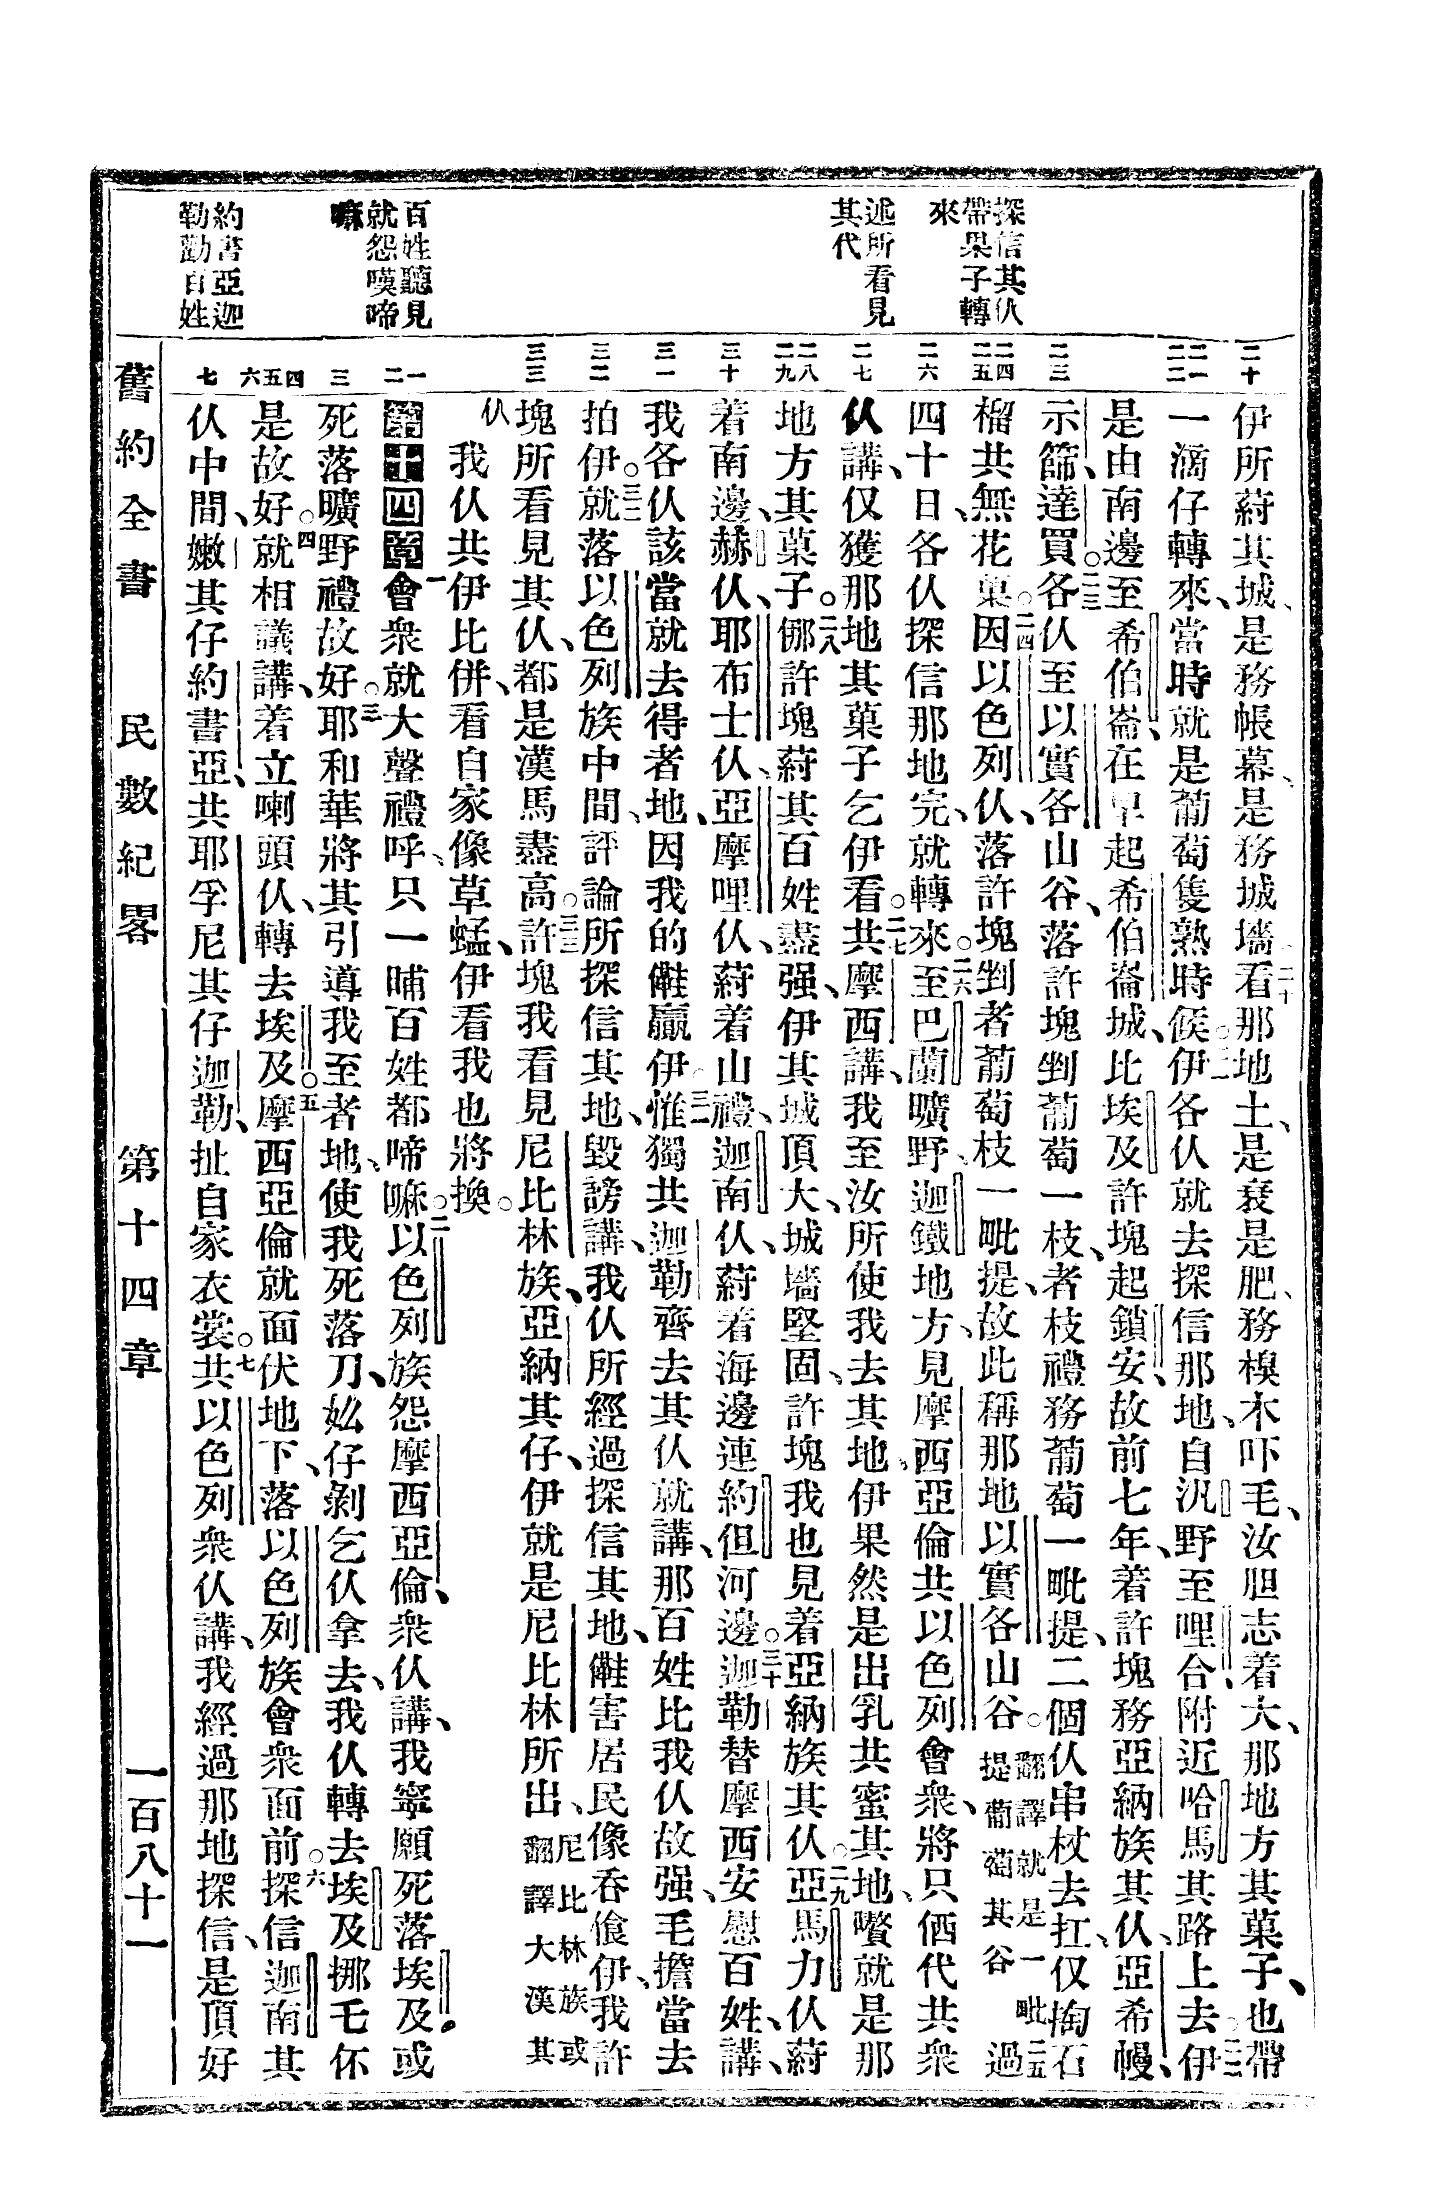 探信其仈
帶果子轉
來
述所看見
其代
百姓聽見
就怨嘆啼
嘛
約書亞迦
勒勸百姓
二十
二一
二二
二三
二四
二五
二六
二七
二八
二九
三十
三一
三二
三三
一
二
三
四
五
六
七
伊所䓁其城、是務帳幕、是務城墻、二十看那地土、是衰是肥、務樹木吓毛、汝胆志着大、那地方其菓子、也帶
一滴仔轉來、當時就是葡萄隻熟時候。二一伊各仈就去探信那地、自汛野至哩合、附近哈馬其路。二二上去伊
是由南邊至希伯崙、在早起希伯崙城、比埃及許塊起鎖安、故前七年、着許塊務亞納族其仈、亞希幔、
示篩、達買。二三各仈至以實各山谷、落許塊剉葡萄一枝、者枝禮務葡萄一毗提、二個仈串杖去扛、仅掏石
榴共無花菓。二四因以色列仈、落許塊剉者葡萄枝一毗提、故此稱那地以實各山谷。翻譯就是一毗提葡萄其谷二五過
四十日、各仈探信那地完、就轉來。二六至巴蘭曠野、迦鐵地方、見摩西亞倫共以色列會衆、將只仾代共衆
仈講、仅獲那地其菓子乞伊看。二七共摩西講、我至汝所使我去其地、伊果然是出乳共蜜其地、嚽就是那
地方其菓子。二八㑚許塊䓁其百姓盡强、伊其城頂大、城墻堅固、許塊我也見着亞納族其仈。二九亞馬力仈䓁
着南邊、赫仈、耶布士仈、亞摩哩仈、䓁着山禮、迦南仈、䓁着海邊連約但河邊。三十迦勒替摩西安慰百姓、講、
我各仈該當就去得者地、因我的儺贏伊。三一惟獨共迦勒齊去其仈就講、那百姓比我仈故强、毛擔當去
拍伊。三二就落以色列族中間、評論所探信其地、毀謗講、我仈所經過探信其地、儺害居民、像吞飡伊、我許
塊所看見其仈、都是漢馬盡高。三三許塊我看見尼比林族、亞納其仔、伊就是尼比林所出、尼比林族或翻譯大漢其仈
我仈共伊比併、看自家像草蜢、伊看我也將換。
第十四章一會衆就大聲禮呼、只一晡百姓都啼嘛。二以色列族怨摩西亞倫、衆仈講、我寧願死落埃及、或
死落曠野禮故好。三耶和華將其引導我至者地、使我死落刀、妐仔剝乞仈拿去、我仈轉去埃及、挪毛伓
是故好。四就相議講、着立喇頭仈、轉去埃及。五摩西亞倫就面伏地下、落以色列族會衆面前。六探信迦南其
仈中間、嫩其仔約書亞、共耶孚尼其仔迦勒、扯自家衣裳。七共以色列衆仈講、我經過那地探信、是頂好
舊約全書　民數紀畧　第十四章　一百八十一